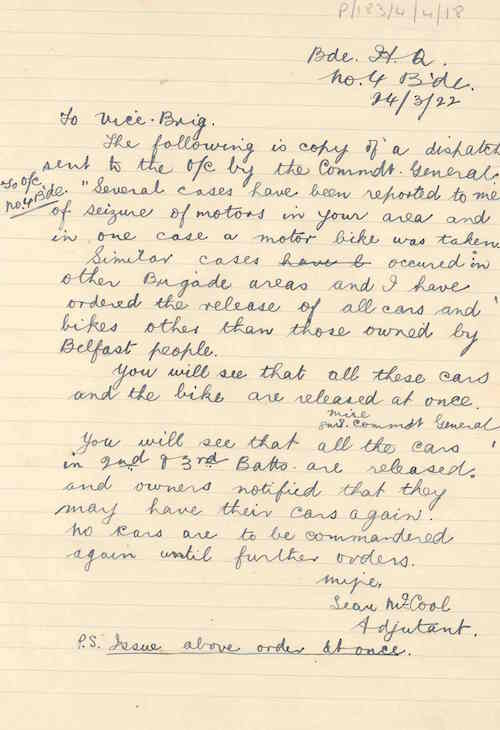 P/183/4/4/18
Bde. H. Q.
No. 4 B'de.
24/3/22
To Vice-Brig.
The following is copy of a dispatch
sent to the O/C by the Commdt. General.
To O/C.
No. 4 B'de.
"Several cases have been reported to me
of seizure of motors in your area and
in one case a motor bike was taken
Similar cases have b occured in
other Brigade areas and I have
ordered the release of all cars and
bikes other than those owned by
Belfast people.
You will see that all these cars
and the bike are released at once.
mise
Commdt General
You will see that all the cars
in 2nd & 3rd Batts. are released.
and owners notified that they
may have their cars again.
No cars are to be commandered
again until further orders.
mise,
Sean McCool
Adjutant.
P.S. Issue above order at once.